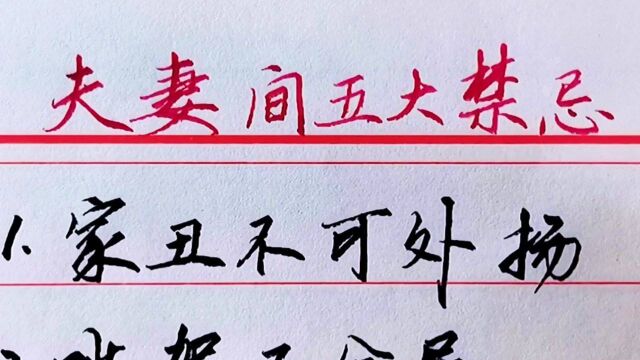 夫妻间五大禁忌
1. 家丑不可处扬